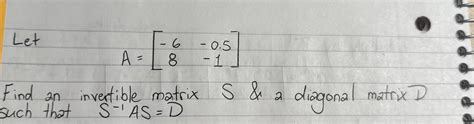 Let
A = [ -6 -0.5
8 -1 ]
Find an invertible matrix S & a diagonal matrix D
such that S⁻¹AS = D